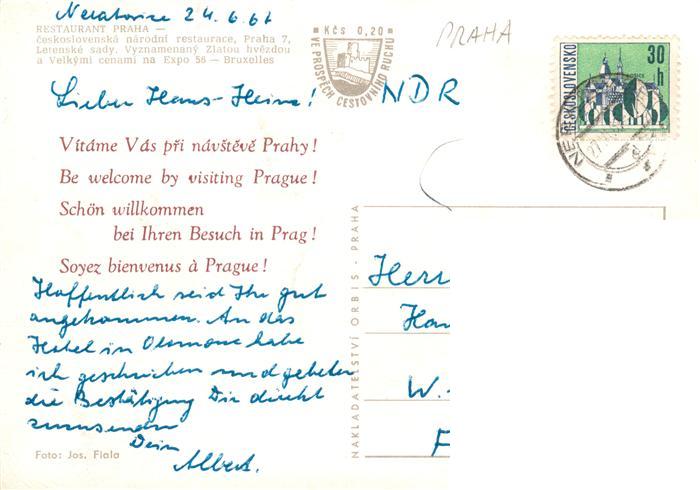 Neratovice 24.6.67
RESTAURANT PRAHA —
československá národní restaurace, Praha 7,
Letenské sady. Vyznamenaný Zlatou hvězdou
a Velkými cenami na Expo 58 — Bruxelles
KčS 0,20
VE PROSPĚCH CESTOVNÍHO RUCHU
PRAHA
ČESKOSLOVENSKO
30 h
Lieber Hans-Heinz!
NDR
Vítáme Vás při návštěvě Prahy!
Be welcome by visiting Prague!
Schön willkommen
bei Ihren Besuch in Prag!
Soyez bienvenus à Prague!
Hoffentlich seid Ihr gut
angekommen. An das
Hotel in Olomouc habe
ich geschrieben und gebeten
die Bestätigung Dir direkt
zuzusenden
Dein
Albert.
Foto: Jos. Fiala
NAKLADATELSTVÍ ORBIS - PRAHA
Herr
Han
W.
F